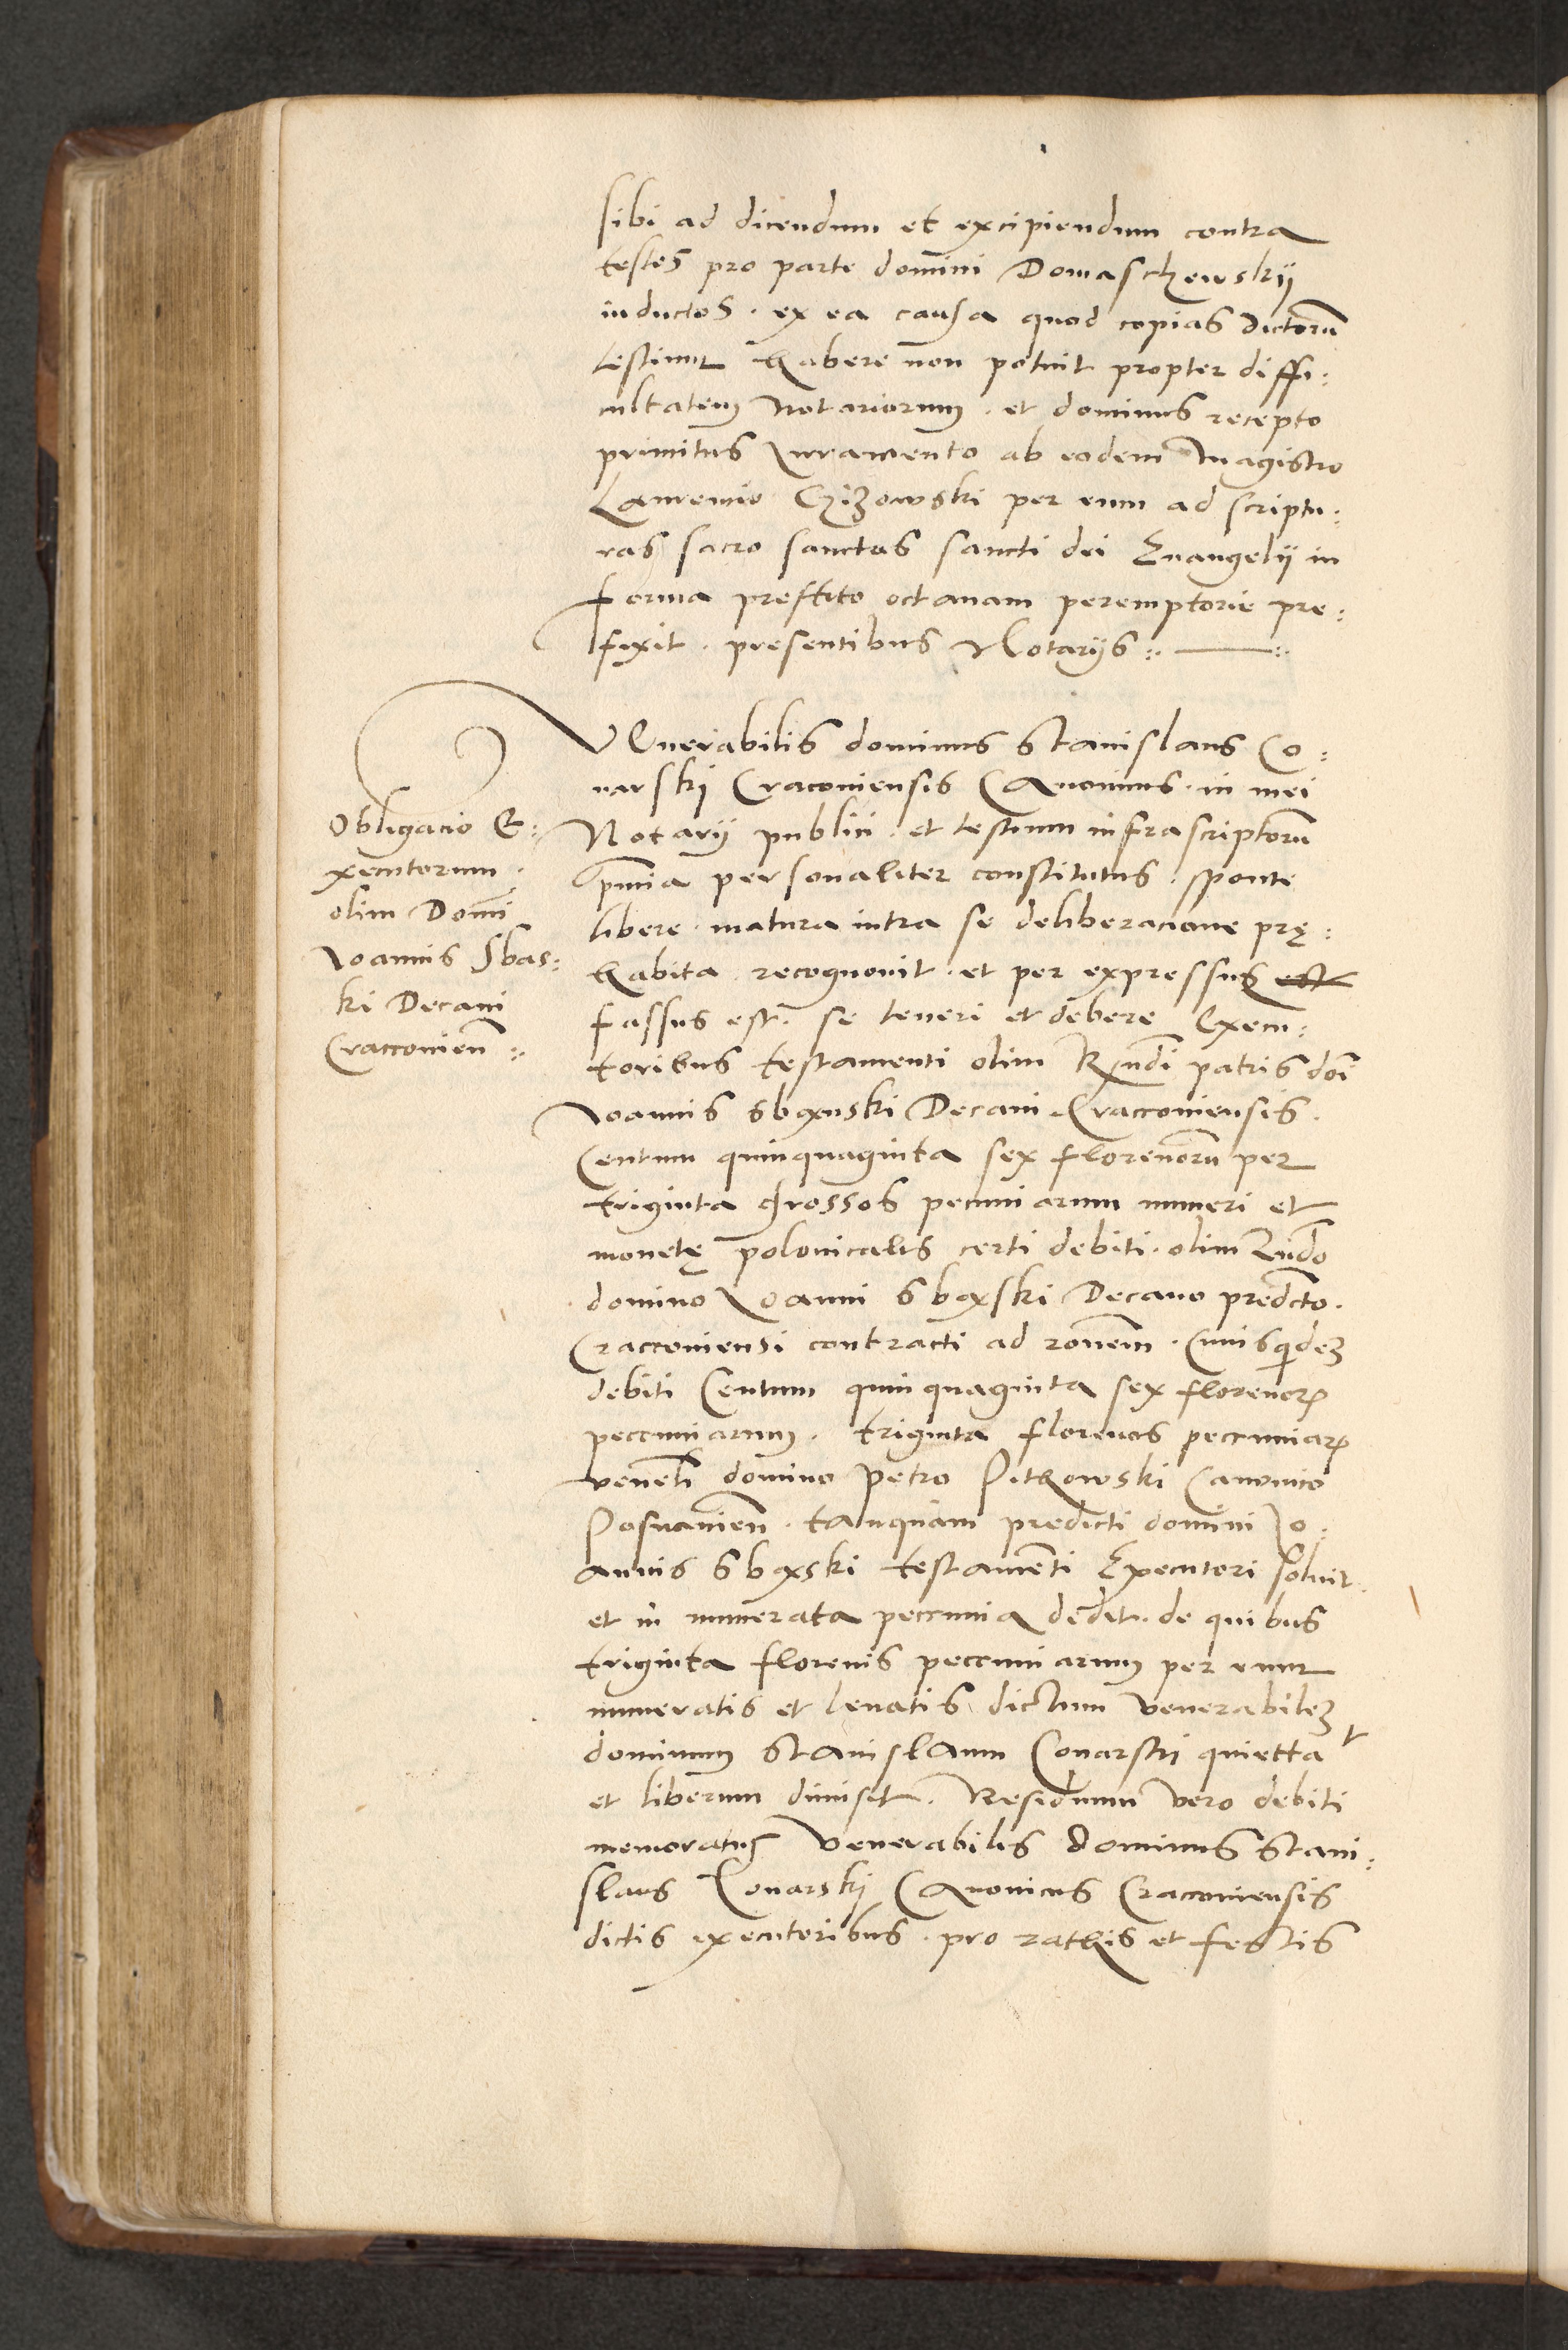 sibi ad dicendum et excipiendum contra
testes pro parte domini Domaschewskij
inductos · ex ea causa quod copias dictorũ
testium habere non potuit propter diffi:
cultatem Notariorum · et dominus recepto
primitus Iuramento ab eodem Magistro
Laurencio Czizowski per eum ad scriptu:
ras sacro sanctas sancti dei Euangelij in
forma prestito octauam peremptorie pre:
fixit · presentibus Notarijs
VEnerabilis dominus Stanislaus Co:
narskj Cracouiensis CAnonicus · in mei
Notarij publici · et testium infrascriptorũ
pñcia personaliter constitutus · sponte
libere · matura intra se deliberacione prę:
habita · recognouit · et per expressus est
fassus est · se teneri et debere Execu:
toribus testamenti olim Rñdi patris doi
Ioannis Sbąnski Decani Craccouiensis ·
Centum quinquaginta sex florenorũ per
triginta grossos pecuniarum numeri et
monetę polonicalis certi debiti · olim Rndo
domino Ioanni Sbąski Decano predcto ·
Craccouiensi contracti ad ronem · Cuiusquidem
debiti Centum quinquaginta sex florenor
peccuniarum · triginta florenos peccuniar
veneli domino petro Pitkowski Canonico
Posnanien · tanquam predicti domini Io:
annis Sbąski testamenti Executori soluit
et in numerata peccunia dedit · de quibus
triginta florenis peccuniarum per eum
numeratis et leuatis dictum venerabilem
dominum Stanislaum Conarski quietta
et liberum dimisit · Residuum vero debiti
memoratus Venerabilis dominus Stani:
slaus Conarskj CAnonicus Craccouiensis
dictis executoribus · pro rathis et festis
Obligacio E:
xecutorum
olim Domi
Ioannis Sbas:
ki Decani
Craccouien